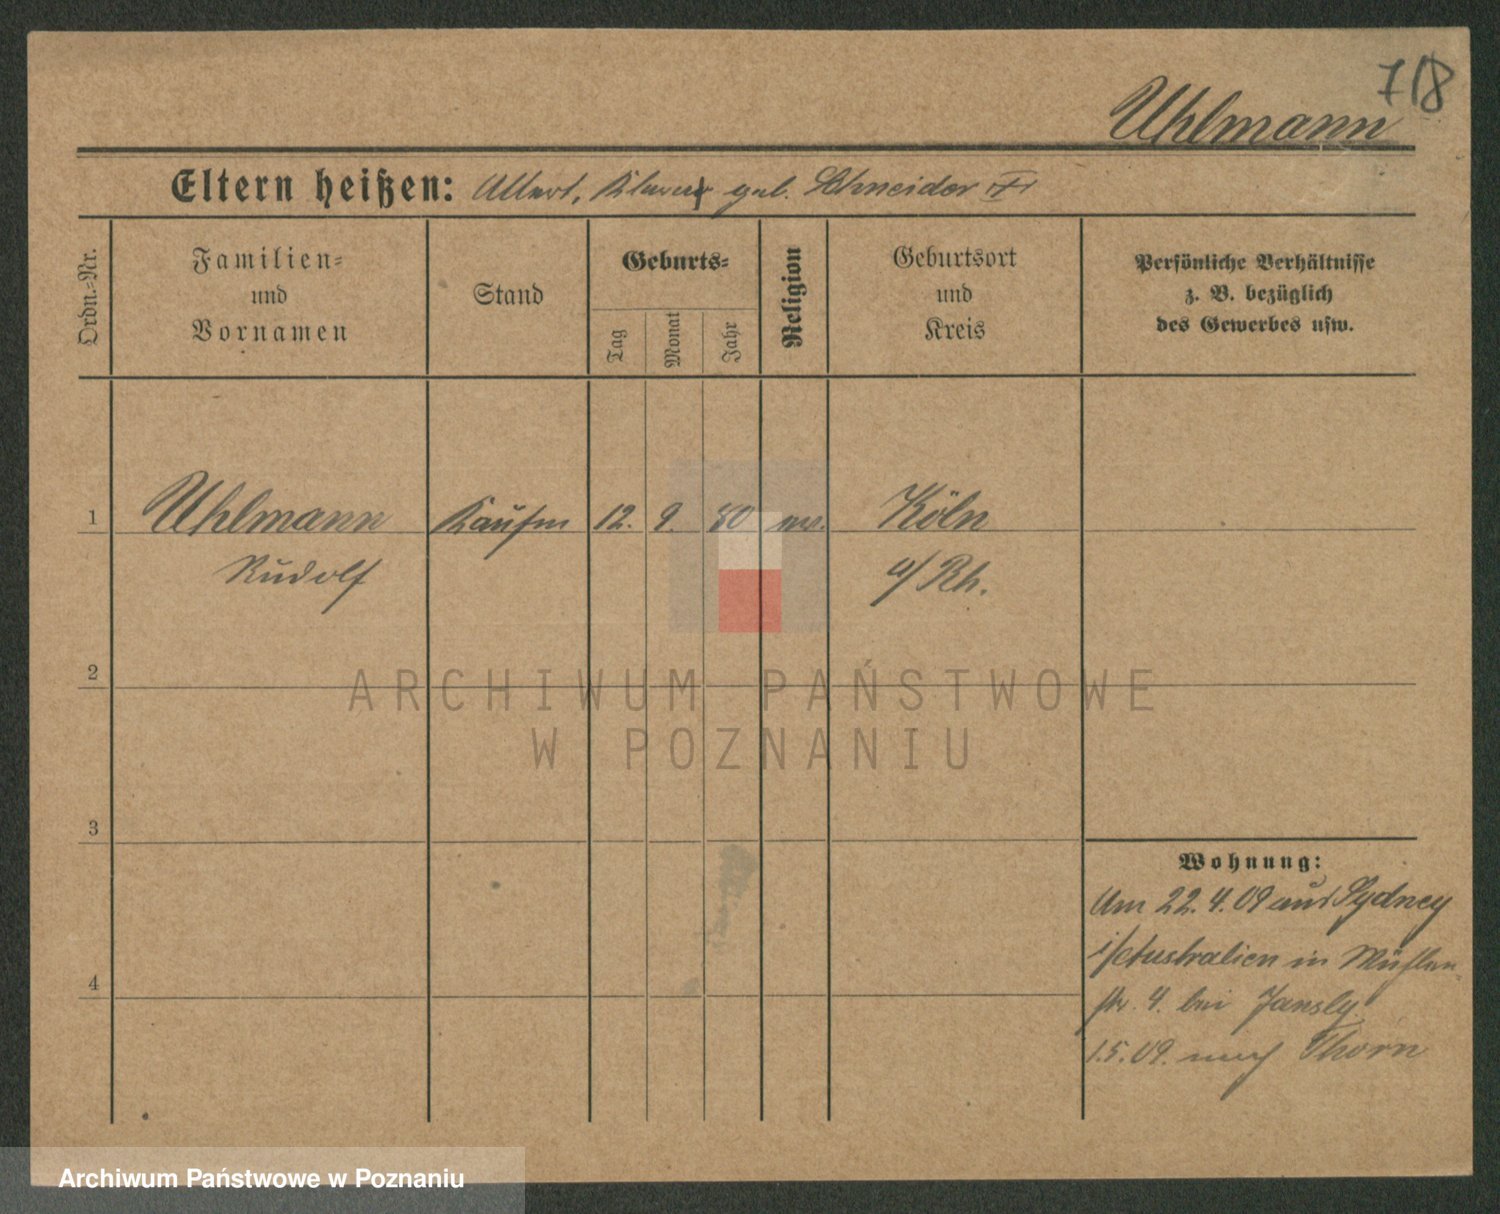 718
Uhlmann
Eltern heißen: Albert, geb. Schneider
Ordn.-Nr.
Familien-
und
Vornamen
Stand
Geburts-
Tag
Monat
Jahr
Religion
Geburtsort
und
Kreis
Persönliche Verhältnisse
z. B. bezüglich
des Gewerbes usw.
1 Uhlmann Kaufm 12. 9. 80 Köln
Rudolf a/Rh.
2
3
4
Wohnung:
Am 22.4.09 aus Sydney
i/Australien in Mühlen-
str. 4. bei
1.5.09. nach Thorn
ARCHIWUM PAŃSTWOWE
W POZNANIU
Archiwum Państwowe w Poznaniu